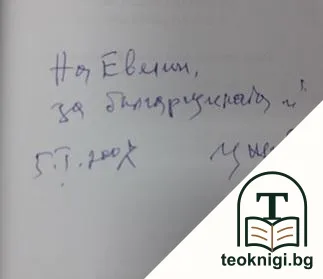 На Евелин,
за българската и
5.I.2007
T
teoknigi.bg